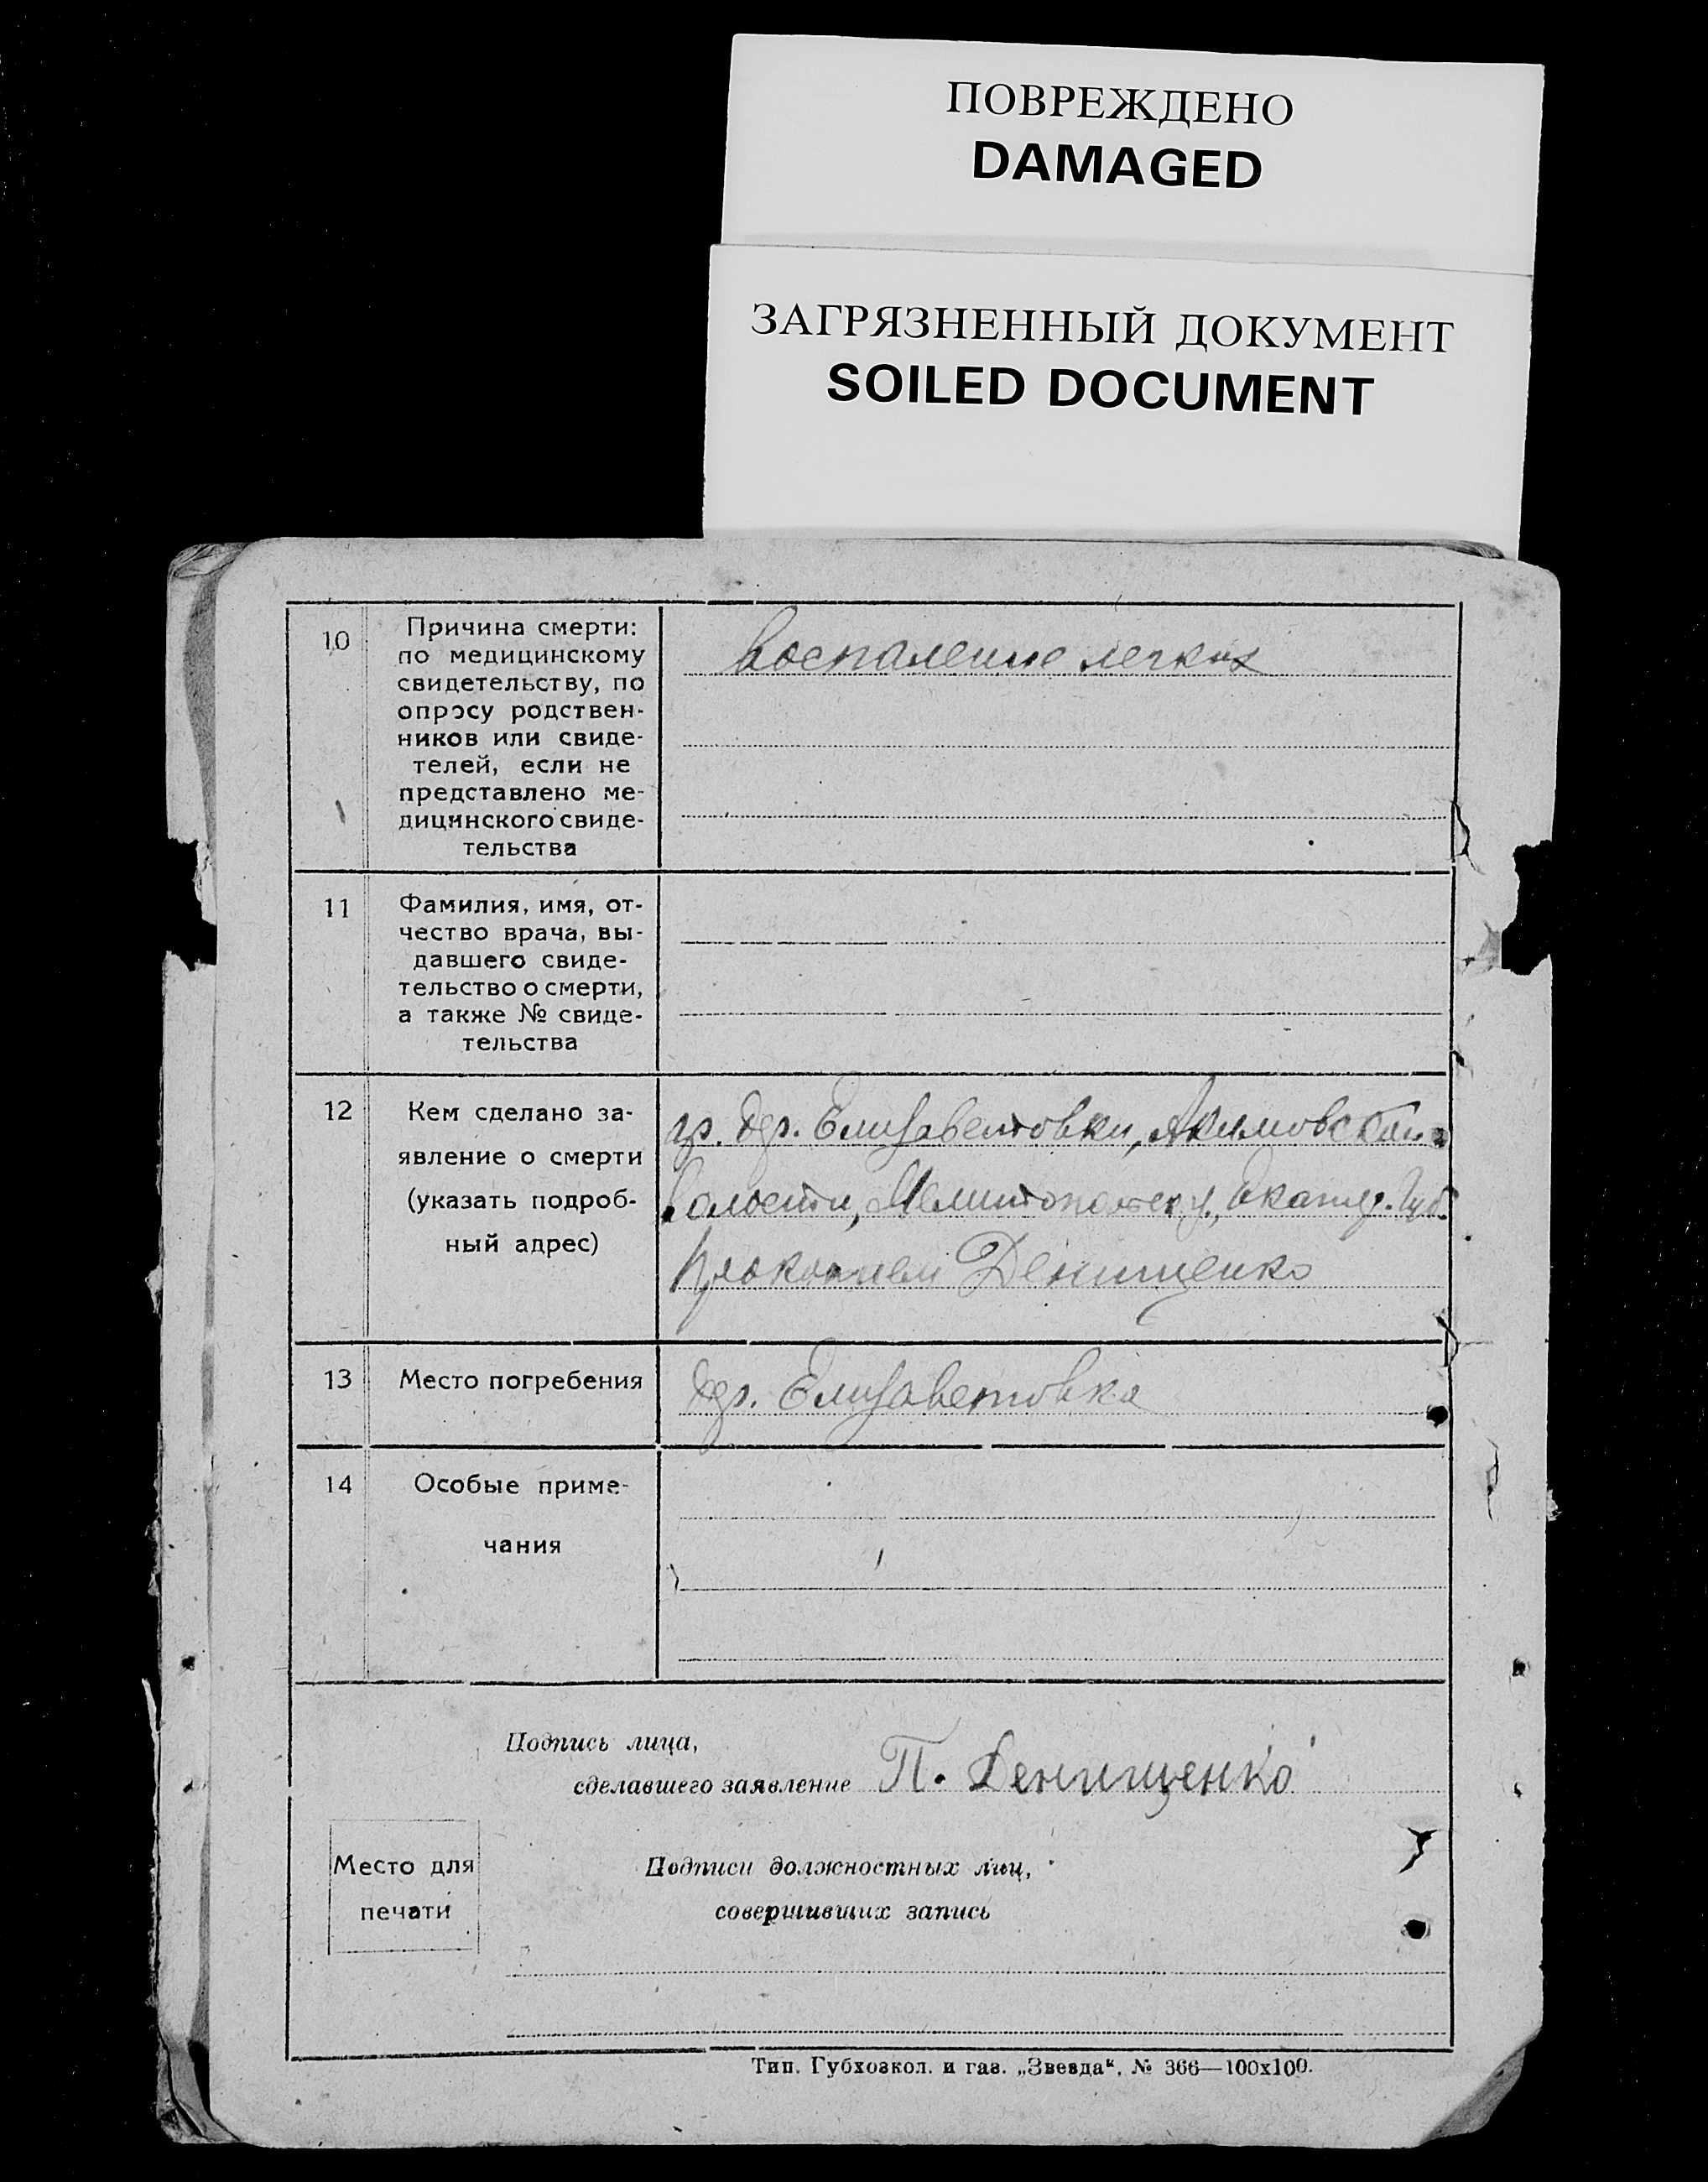 ПОВРЕЖДЕНО
DAMAGED
ЗАГРЯЗНЕННЫЙ ДОКУМЕНТ
SOILED DOCUMENT
10
Причина смерти:
по медицинскому
свидетельству, по
опросу родствен-
ников или свиде-
телей, если не
представлено ме-
дицинского свиде-
тельства
воспаление легких
11
Фамилия, имя, от-
чество врача, вы-
давшего свиде-
тельство о смерти,
а также № свиде-
тельства
12
Кем сделано за-
явление о смерти
(указать подроб-
ный адрес)
гр. дер. Елизаветовки, Акимовской
волости, Мелитопольск у., Екатер. Губ.
Прокопием Денищенко
13
Место погребения
дер. Елизаветовка
14
Особые приме-
чания
Подпись лица,
сделавшего заявление П. Денищенко
Место для
печати
Подписи должностных лиц,
совершивших запись
Тип. Губхозкол. и газ. „Звезда“. № 366—100х100.